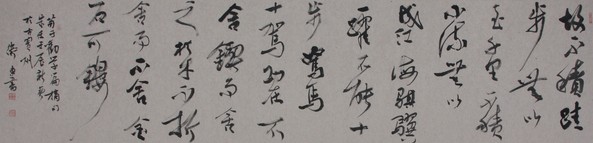 故不積跬
步無以
至千里不積
小流無以
成江海騏驥
一躍不能十
步駑馬
十駕功在不
舍鍥而舍
之朽木不折
鍥而不舍金
石可鏤
荀子勸學篇摘句